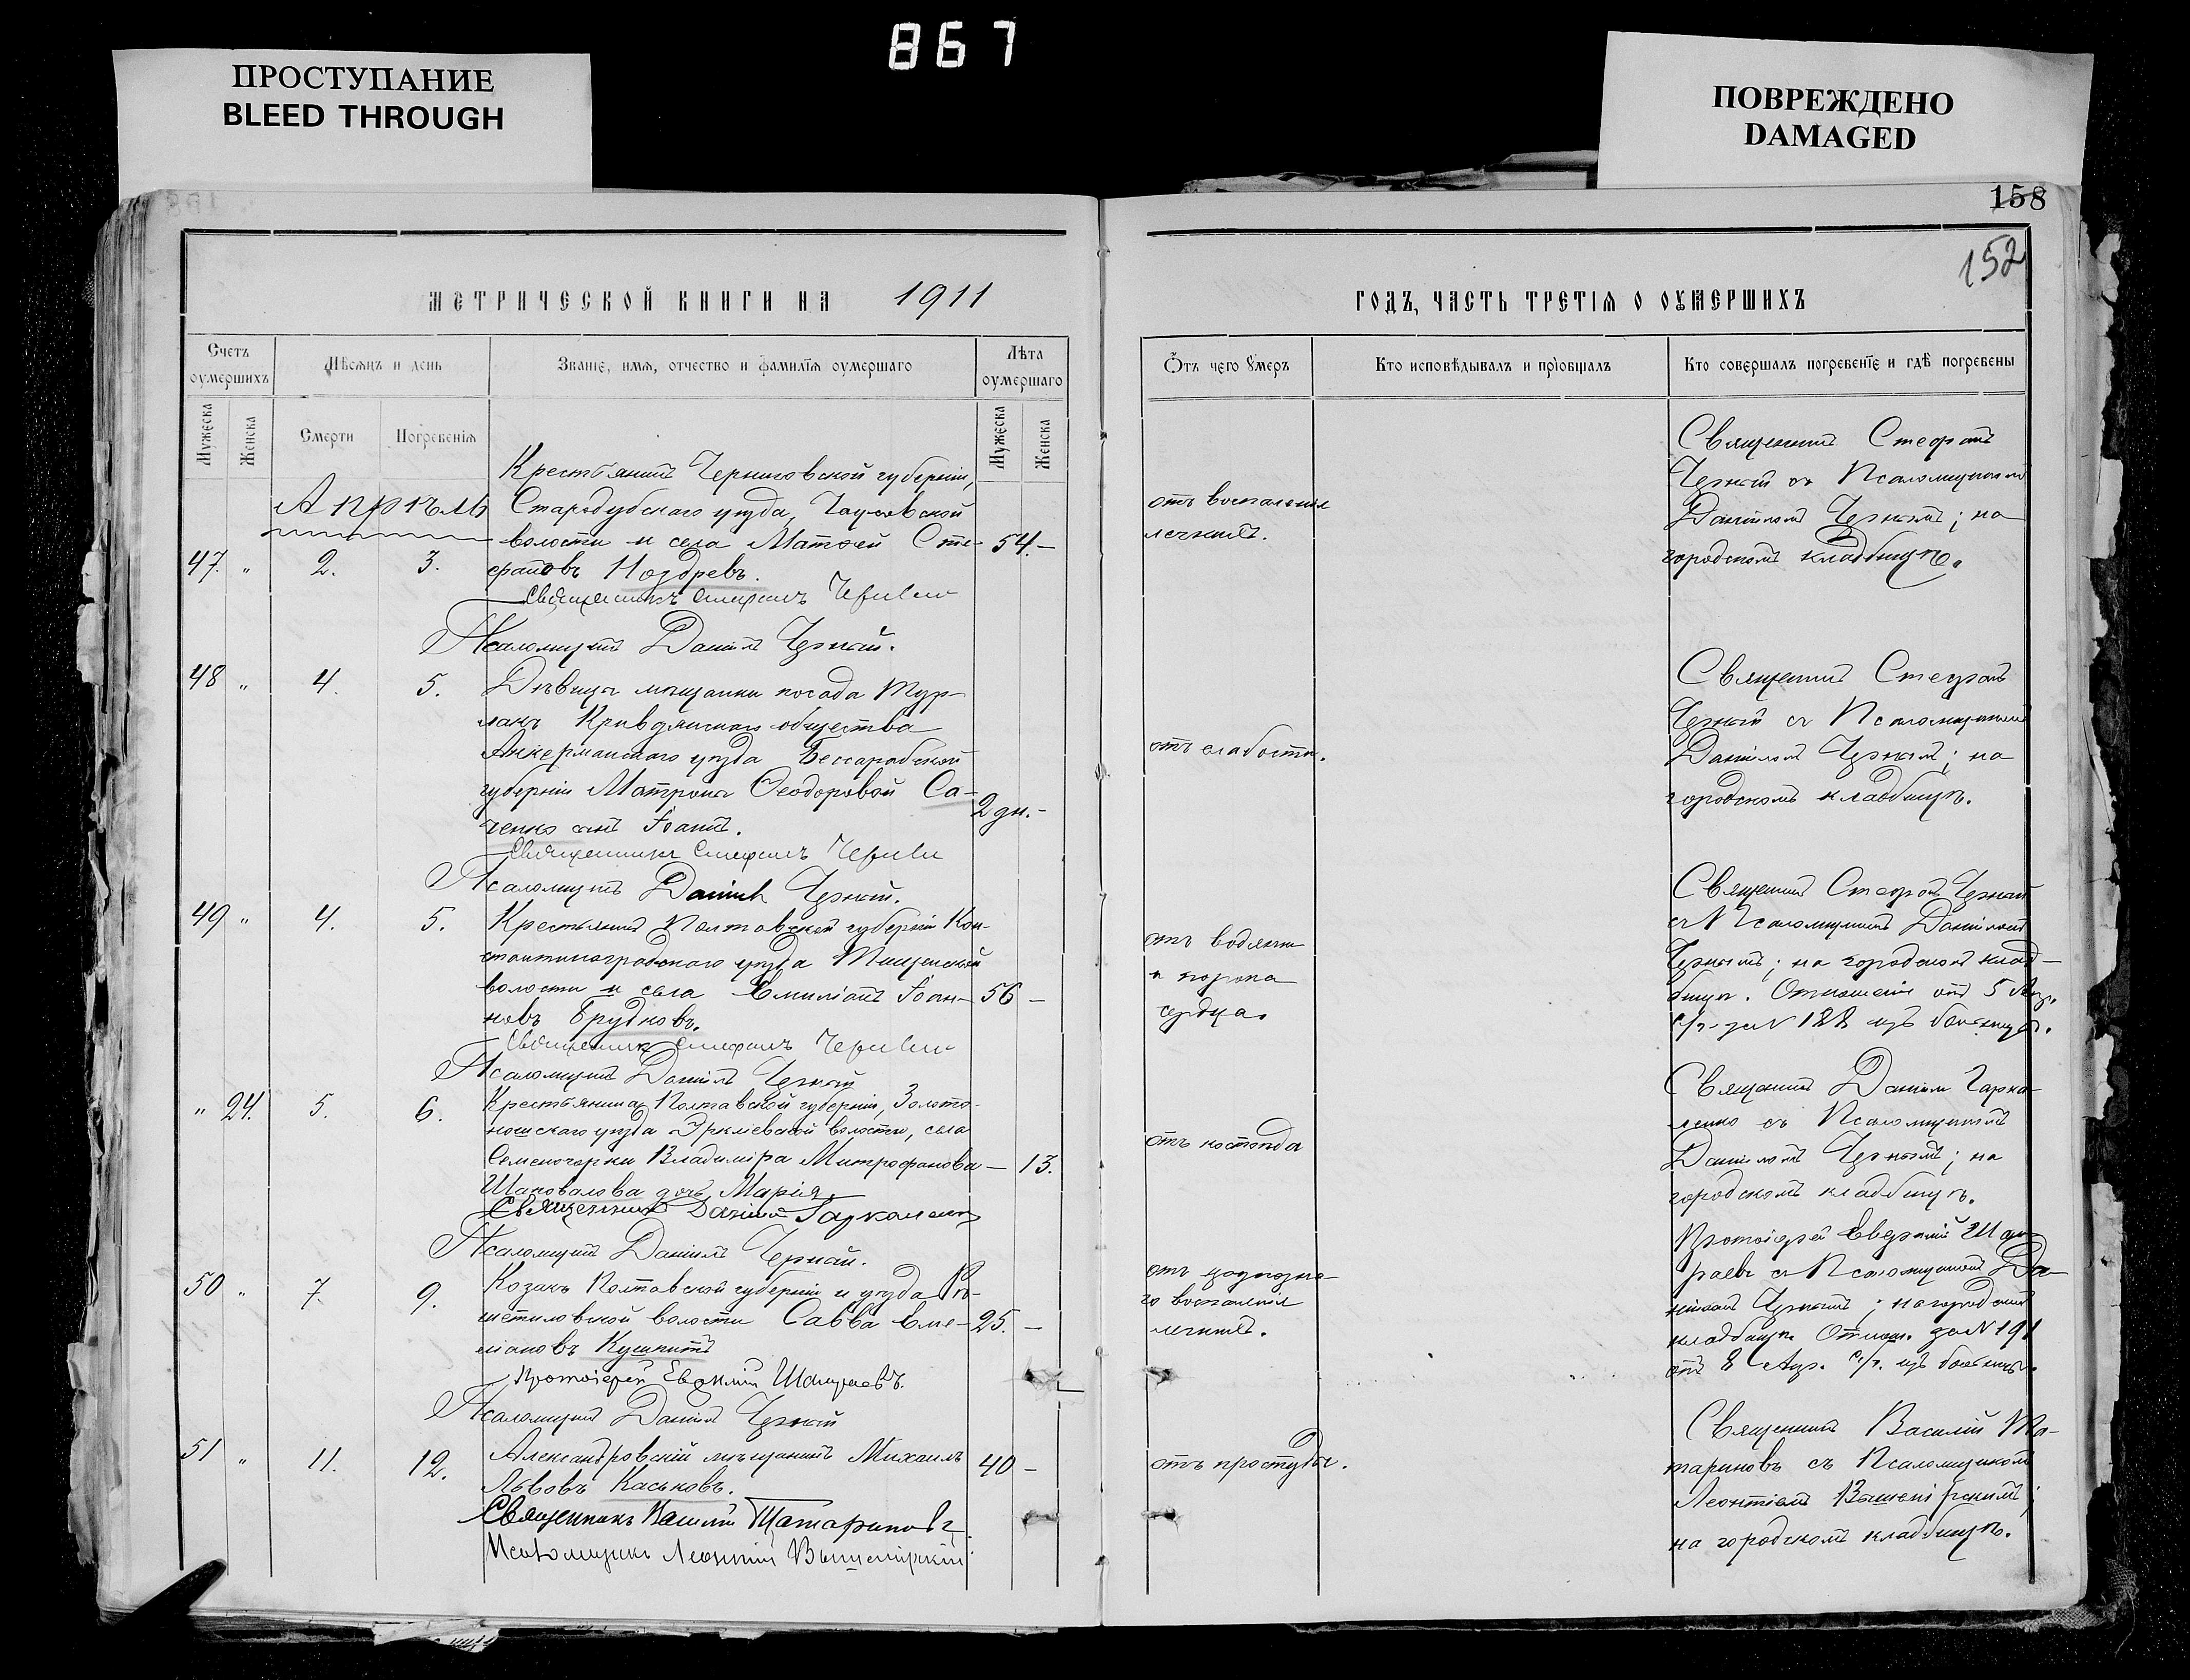 867
ПРОСТУПАНИЕ
BLEED THROUGH
ПОВРЕЖДЕНО
DAMAGED
158
152
МЕТРИЧЕСКОЙ КНИГИ НА 1911
ГОДЪ, ЧАСТЬ ТРЕТІЯ О ОУМЕРШИХЪ
Счетъ оумершихъ
Мѣсяцъ и день
Званіе, имя, отчество и фамилія оумершаго
Лѣта оумершаго
Мужеска
Женска
Смерти
Погребенія
Мужеска
Женска
Отъ чего умеръ
Кто исповѣдывалъ и пріобщалъ
Кто совершалъ погребеніе и гдѣ погребены
Апрѣль
Крестьянинъ Черниговской губерніи,
Стародубскаго уѣзда,
волости и села Матѳей Сте- 54. –
47. " 2. 3. фановъ Ноздревъ.
Священникъ Стефанъ
Псаломщикъ Даніилъ Черный.
отъ воспаленія
легкихъ.
Священникъ Стефанъ
Черный съ Псаломщикомъ
Даніиломъ Чернымъ; на
городскомъ кладбищѣ.
48 " 4. 5. Дѣвицы мѣщанки посада Тур-
лакъ общества
Аккерманскаго уѣзда Бессарабской
губерніи Матроны Ѳеодоровой Са- 2 дн. –
ченко сынъ Іоаннъ.
Священникъ Стефанъ
Псаломщикъ Даніилъ Черный.
отъ слабости.
Священникъ Стефанъ
Черный съ Псаломщикомъ
Даніиломъ Чернымъ; на
городскомъ кладбищѣ.
49 " 4. 5. Крестьянинъ Полтавской губерніи Кон-
стантиноградскаго уѣзда
волости и села Емиліанъ Іоан- 56 –
новъ Брудковъ.
Священникъ Стефанъ
Псаломщикъ Даніилъ Черный
отъ водянки
и порока
сердца.
Священникъ Стефанъ Черный
съ Псаломщикомъ Даніиломъ
Чернымъ; на городскомъ клад-
бищѣ. Отношеніе отъ 5 Апр.
с/г. за N 188 изъ больницы.
" 24. 5. 6. Крестьянина Полтавской губерніи, Золото-
ношскаго уѣзда Ирклѣевской волости, села
Владиміра Митрофанова – 13.
Шаповалова дочь Марія.
Священникъ Даніилъ Гаркаленко
Псаломщикъ Даніилъ Черный.
отъ костоѣда
Священникъ Даніилъ Гарка-
ленко съ Псаломщикомъ
Даніиломъ Чернымъ; на
городскомъ кладбищѣ.
50 " 7. 9. Козакъ Полтавской губерніи и уѣзда Рѣ-
шетиловской волости Савва Еме- 25. –
ліановъ
Протоіерей Евфимій
Псаломщикъ Даніилъ Черный
го воспаленія
легкихъ.
Протоіерей Евфимій
съ Псаломщикомъ Да-
ніиломъ Чернымъ; на городскомъ
кладбищѣ. Отнош. за N 191
отъ 8 Апр. с/г. изъ больницы.
51 " 11. 12. Александровскій мѣщанинъ Михаилъ 40 –
Львовъ Каськовъ.
Священникъ Василій Татариновъ
Псаломщикъ Леонтій Вышемірскій
отъ простуды.
Священникъ Василій Та-
тариновъ съ Псаломщикомъ
Леонтіемъ Вышемірскимъ;
на городскомъ кладбищѣ.